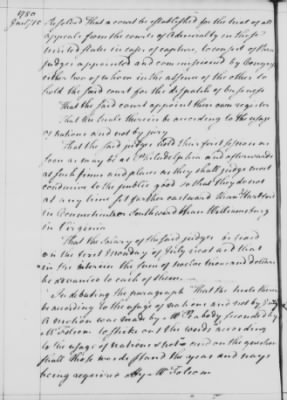 1780
Jany. 15
Resolved That a court be established for the trial of all
Appeals from the courts of Admiralty in these
United States in cases of capture, to consist of three
judges appointed and commissioned by Congress
either two of whom in the absence of the other to
hold the said court for the despatch of business
That the said court appoint their own register
That the trials therein be according to the usage
of nations and not by jury
That the said judges hold their first session as
soon as may be at Philadelphia and afterwards
at such times and places as they shall judge most
conducive to the public good so that they do not
at any time sit farther eastward than Hartford
in Connecticut or Southward than Williamsburg
in Virginia
That the Salary of the said judges be
on the first Monday of July next and that
in the interim the sum of twelve thousand dollars
be advanced to each of them
In debating the paragraph "That the trials therein
be according to the usage of nations and not by jury
A motion was made by Mr Peabody seconded by
Mr Folsom to strike out the words "according
to the usage of nations & not" and on the question
shall those words stand the yeas and nays
being required by Mr Folsom